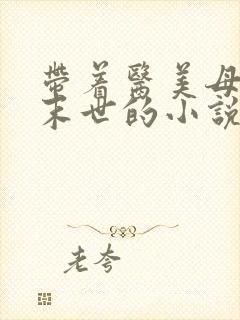 帶着醫美母
末世的小說
老夸